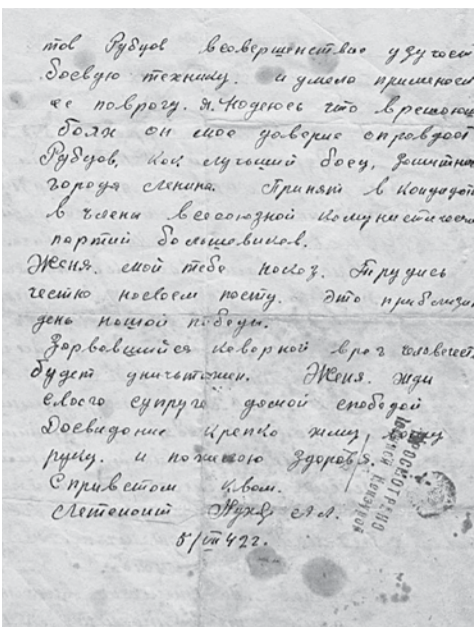 тов Рубцов всовершенстве узучает
боевую технику. и умело применяет
ее поврогу. Я. Нодеюсь что врешающ
боях он мое доверие оправдоет
Рубцов, как лучший боец, зощитник
города Ленина. Принят в кондидат
в члены всесоюзной комунистическ
партий большевиков.
Женя. мой тебе ноказ. Трудись
честно носвоем посту. Это приблизи
день ношой победы.
Зорвовшийся коворной врог человечест
будет уничьтожен. Женя. Жди
своего супруга домой спободой
Досвидоние крепко жму, вошу
руку. и пожелою здоровя.
Сприветом квам.
Летенонт А.Л.
5/VIII 42 г.
ПРОСМОТРЕНО
Военной Цензурой